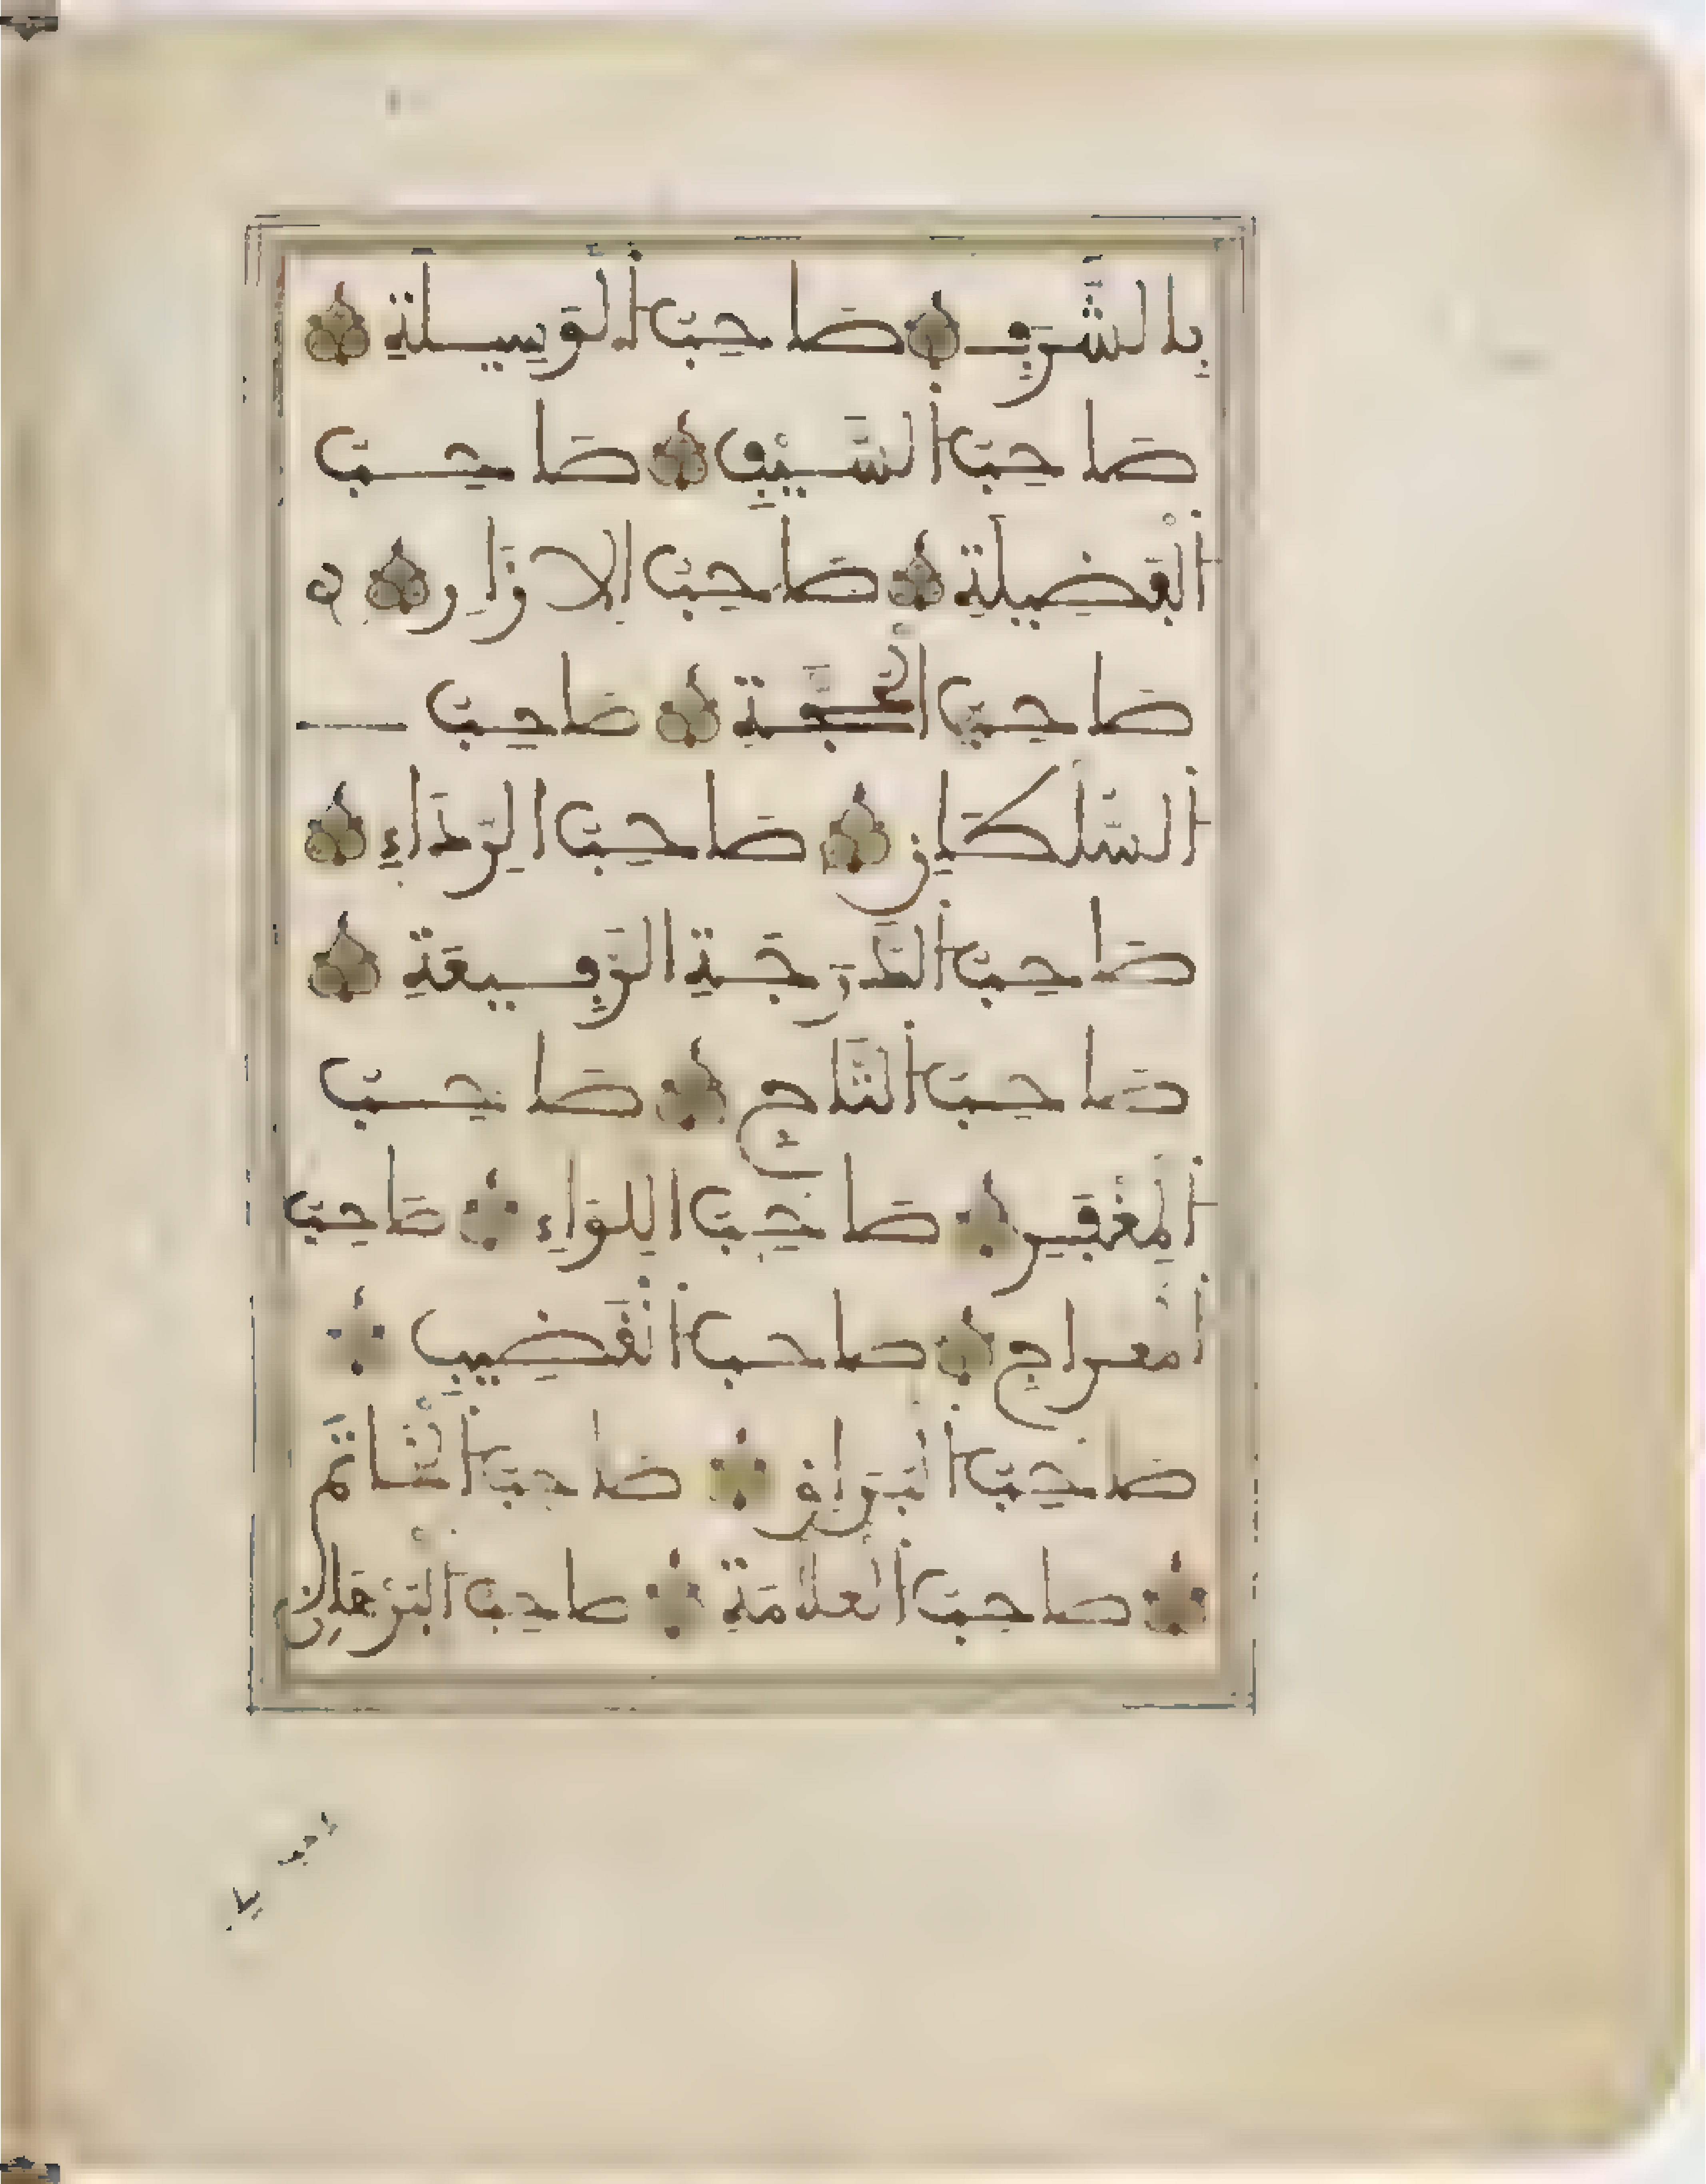 بِالشَّرَفِ صَاحِبُ الْوَسِيلَةِ
صَاحِبُ السَّيْفِ صَاحِبُ
الْفَضِيلَةِ صَاحِبُ الِازَارِ
صَاحِبُ الْحُجَّةِ صَاحِبُ
السُّلْطَانِ صَاحِبُ الرِّدَاءِ
صَاحِبُ الدَّرَجَةِ الرَّفِيعَةِ
صَاحِبُ التَّاجِ صَاحِبُ
الْمِغْفَرِ صَاحِبُ اللِّوَاءِ صَاحِبُ
الْمِعْرَاجِ صَاحِبُ الْقَضِيبِ
صَاحِبُ الْبُرَاقِ صَاحِبُ الْخَاتَمِ
صَاحِبُ الْعَلَامَةِ صَاحِبُ الْبُرْهَانِ